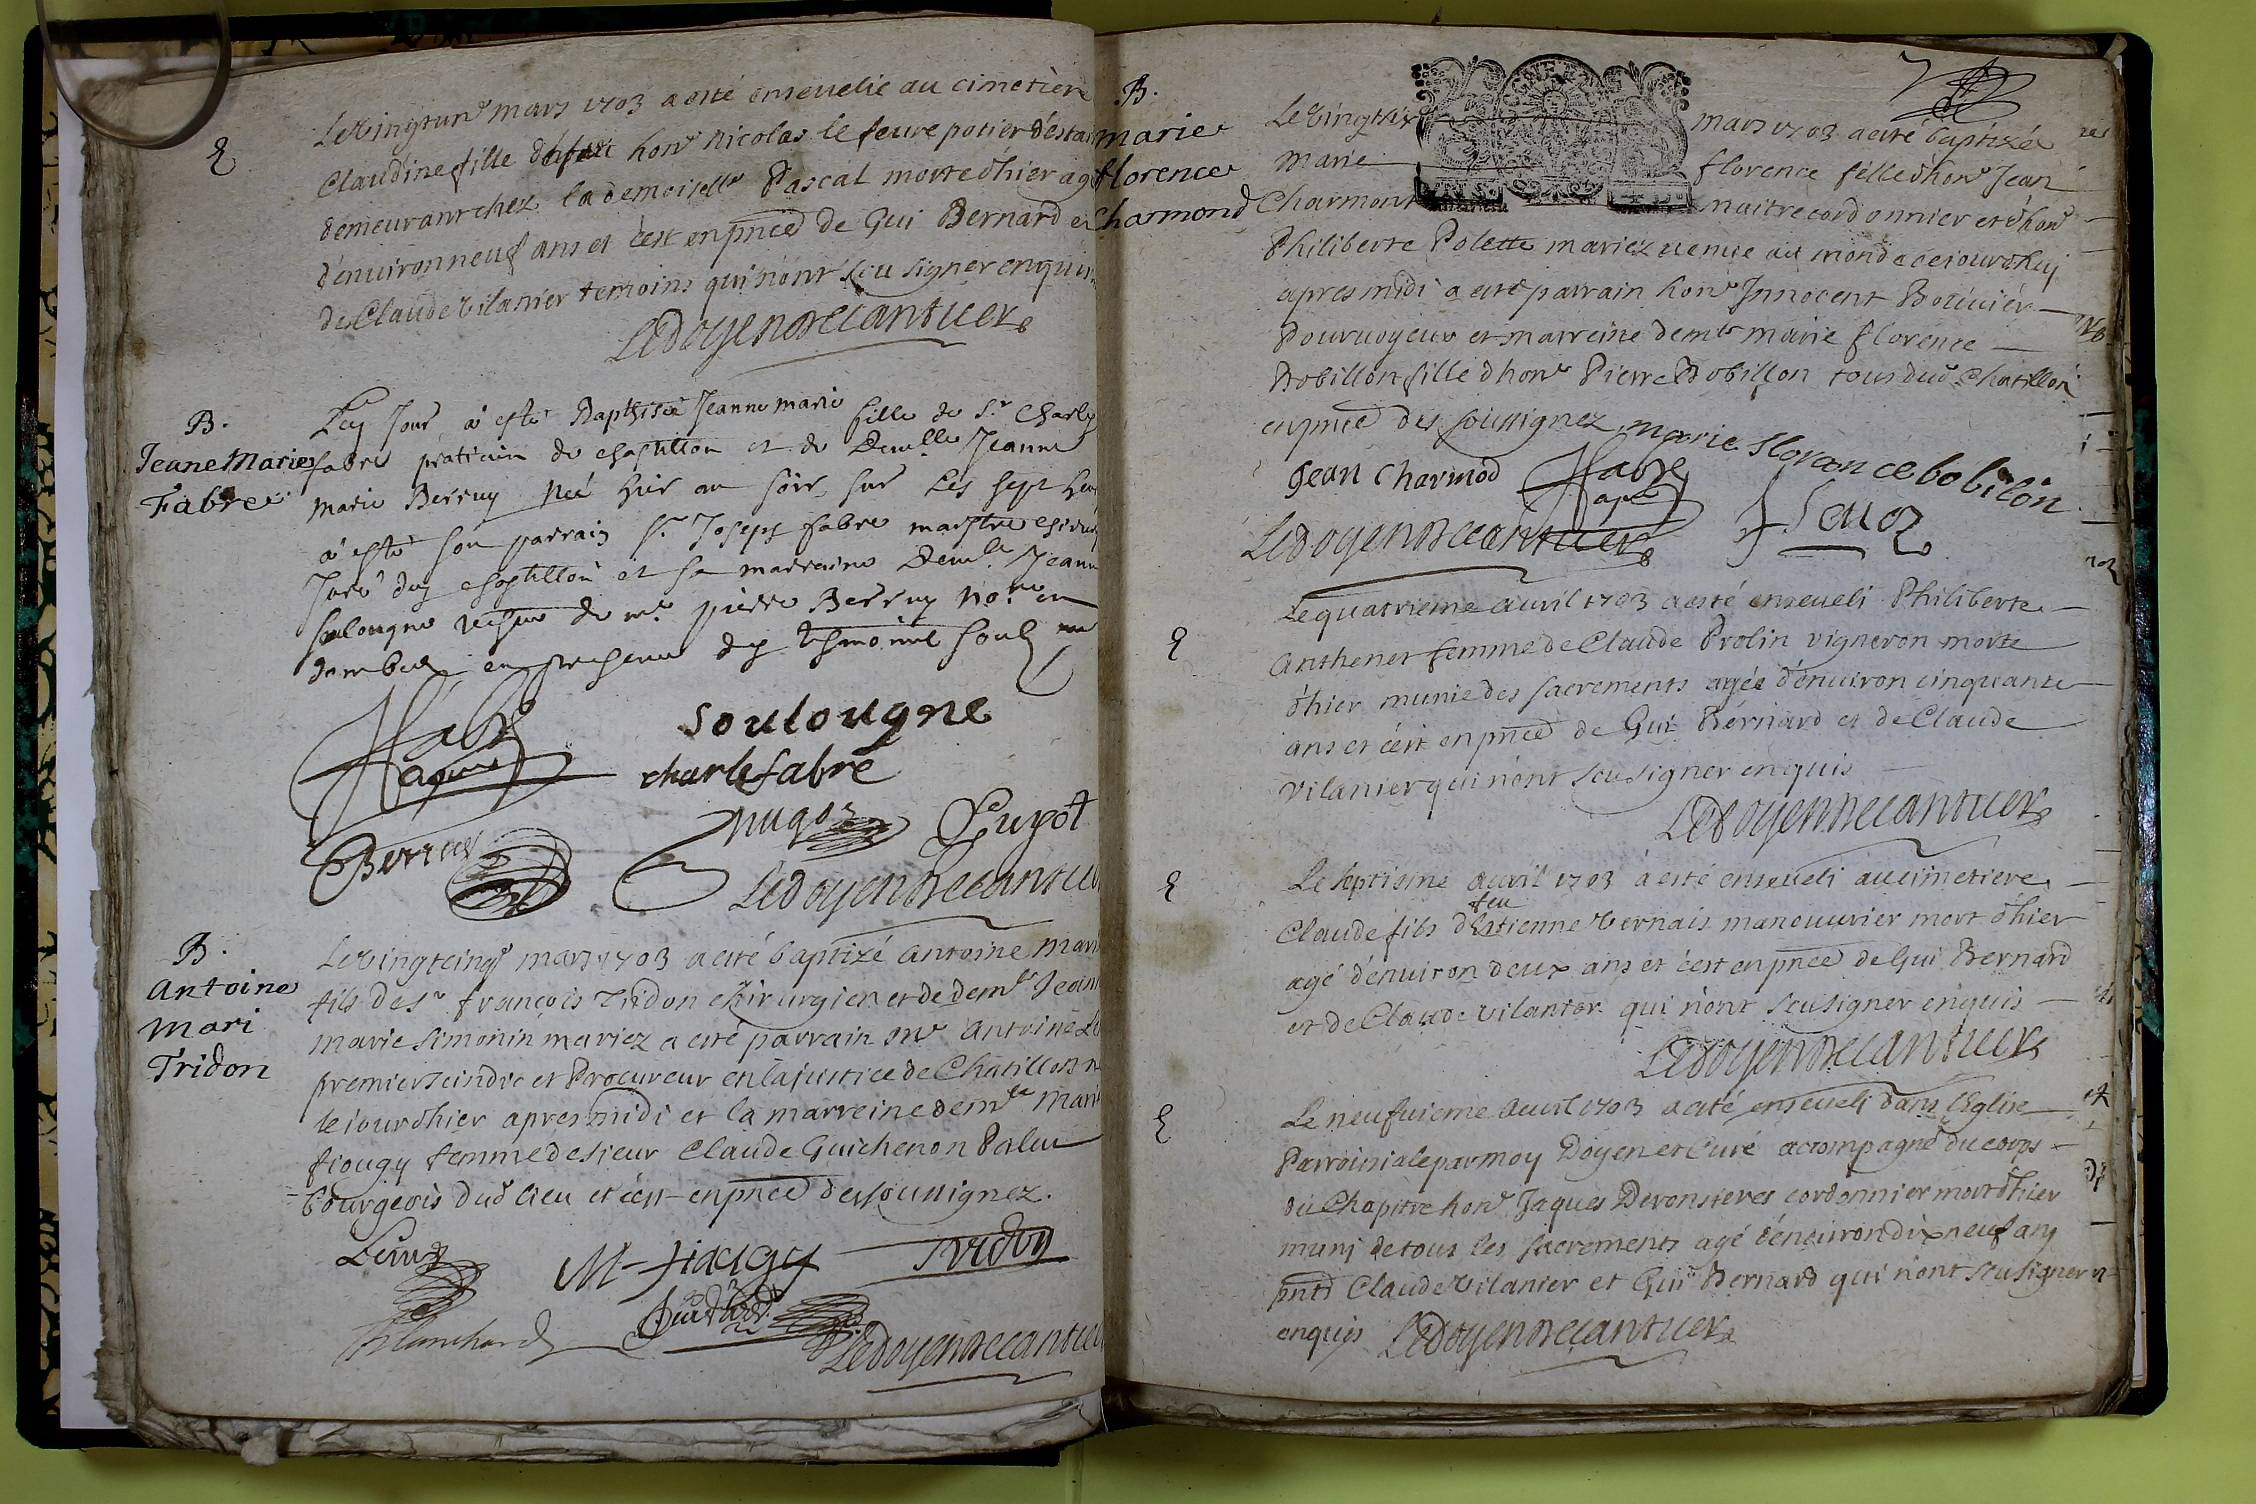 Le vingt un.e mars 1703 a esté enseuelie au cimetiere
E
Claudine fille hon.e Nicolas le feure potier d'estain
demeurant chez la demoiselle Pascal morte d'hier agée
d'enuiron neuf ans et c'est en pnce de Gui Bernard et
de Claude Vilanier temoins qui n'ont sceu signer enquis
Ledoyen
B.
Jeane Marie
Fabre
Led Jour a esté Baptisée Jeanne Marie fille de Sr Charles
fabre praticien de chastillon et de Dem.lle Jeanne
Marie Berruy née hier au soir sur les sept heures
a esté son parrain Sr Joseph fabre maistre chirurg
Juré dud chastillon et sa marraine Dem.lle Jeanne
Soulougne de m.e pierre Berruy no.re en
dombes en presence des tesmoins soub
fabre
Soulougne
charle fabre
Berruy
Guyot
Ledoyen
B.
Antoine
Mari
Tridon
Le vingtcinq mars 1703 a eté baptizé Antoine Mari
fils de Sr françois Tridon chirurgien et de dem.lle Jeanne
marie Simonin mariez a eté parrain m.e Antoine
premier scindic et Procureur en la justice de Chatillon
le iour d'hier apres midi et la marreine dem.lle Marie
fiougy femme de sieur Claude Guichenon Palu
Bourgeois dud lieu et c'est en pnce des soussignez.
M fiougy
Tridon
Blanchard
Ledoyen
B.
Marie
florence
Charmond
Le vingtsix mars 1703 a eté baptizée
Marie florence fille d'hon.e Jean
Charmont maitre cordonnier et d'hon.e
Philiberte Polette mariez uenue au monde ce jourd'huj
apres midi a eté parrain hon.e Innocent Bouuier
Pouruoyeur et marreine dem.lle marie florence
Bobillon fille d'hon.e Pierre Bobillon tous dud Chatillon
en pnce des soussignez
marie florence bobilon
Jean Charmod
fabre
Ledoyen
E
Le quatrieme auril 1703 a esté enseueli Philiberte
Anthenet femme de Claude Prolin vigneron morte
d'hier munie des sacrements agée d'enuiron cinquante
ans et c'est en pnce de Gui Bernard et de Claude
Vilanier qui n'ont sceu signer enquis
Ledoyen
E
Le septieme auril 1703 a esté enseueli au cimetiere
feu
Claude fils d'Estienne Vernais manouurier mort d'hier
agé d'enuiron deux ans et c'est en pnce de Gui Bernard
et de Claude Vilanier qui n'ont sceu signer enquis
Ledoyen
E
Le neufuieme auril 1703 a eté enseueli dans l'Eglise
Parroissiale par moy Doyen et Curé accompagné du corps
du Chapitre hon.e Jaques cordonnier mort d'hier
muni de tous les sacrements agé d'enuiron dixneuf ans
pnts Claude Vilanier et Gui Bernard qui n'ont sceu signer
enquis Ledoyen